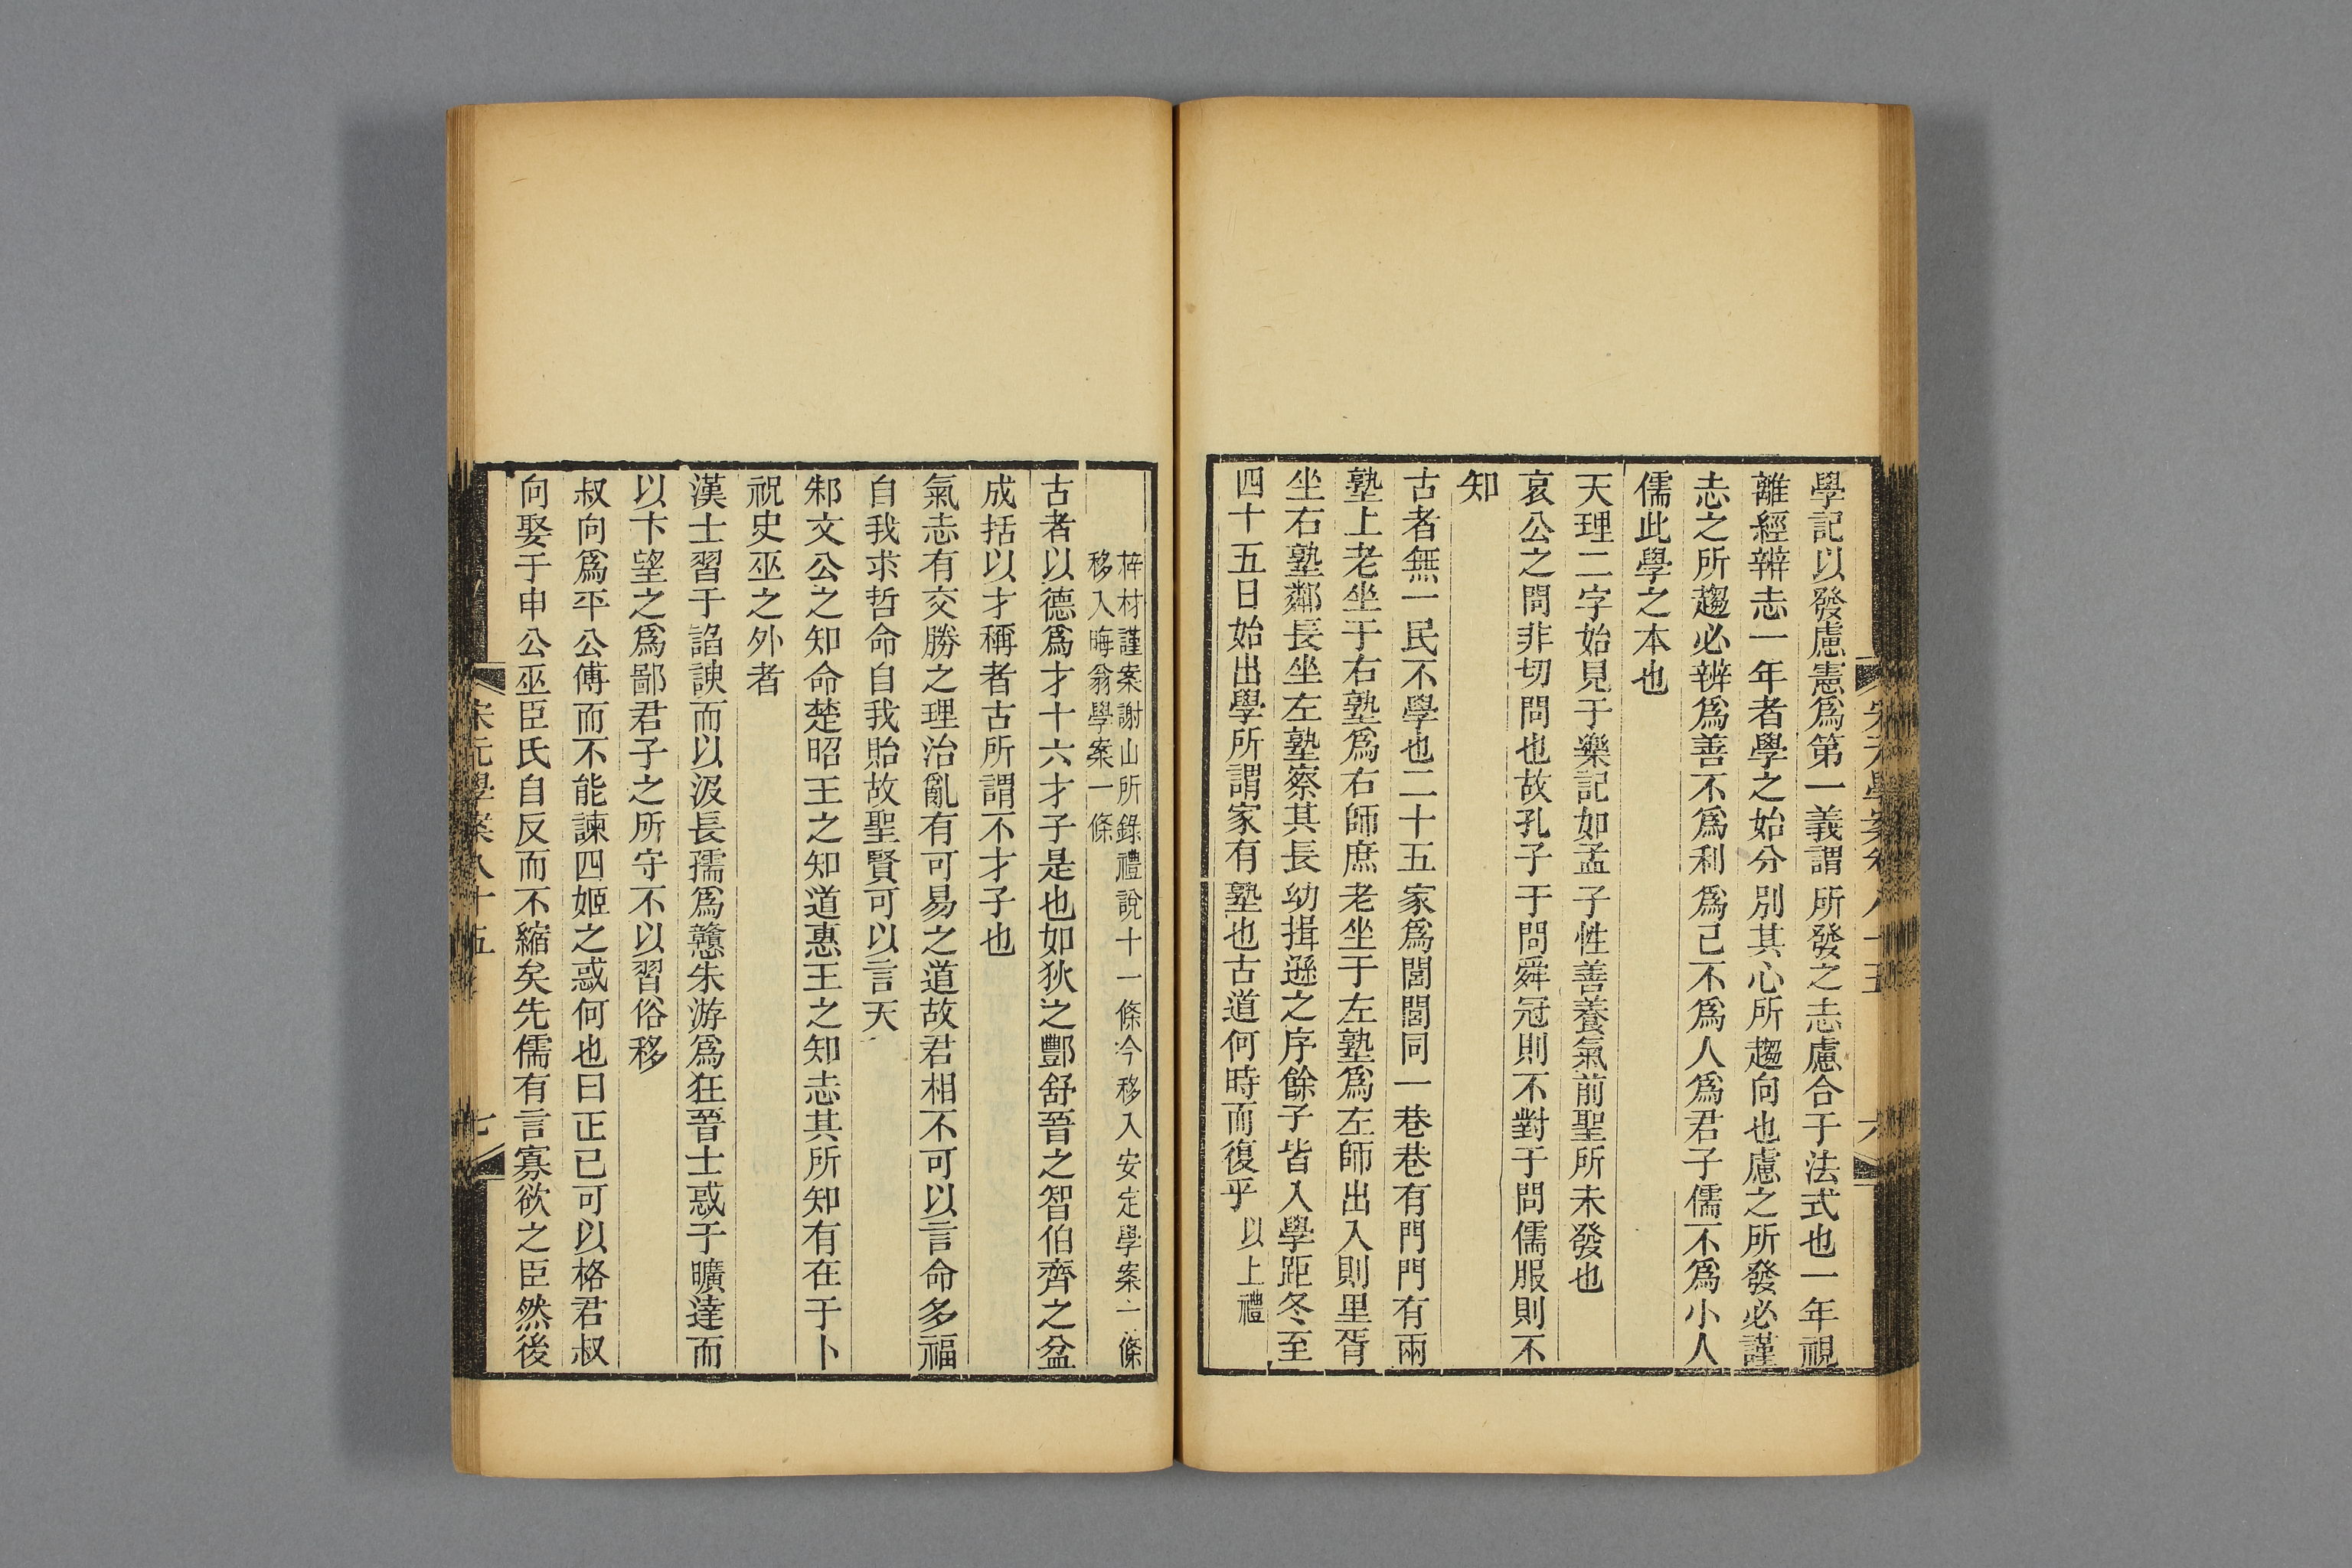 學記以發慮憲爲第一義謂所發之志慮合于法式也一年視
離經辨志一年者學之始分別其心所趨向也慮之所發必謹
志之所趨必辨爲善不爲利爲己不爲人爲君子儒不爲小人
儒此學之本也
天理二字始見于樂記如孟子性善養氣前聖所未發也
哀公之問非切問也故孔子于問舜冠則不對于問儒服則不
知
古者無一民不學也二十五家爲閭閭同一巷巷有門門有兩
塾上老坐于右塾爲右師庶老坐于左塾爲左師出入則里胥
坐右塾鄰長坐左塾察其長幼揖遜之序餘子皆入學距冬至
四十五日始出學所謂家有塾也古道何時而復乎以上禮
梓材謹案謝山所錄禮說十一條今移入安定學案一條
移入晦翁學案一條
古者以德爲才十六才子是也如狄之酆舒晉之智伯齊之盆
成括以才稱者古所謂不才子也
氣志有交勝之理治亂有可易之道故君相不可以言命多福
自我求哲命自我貽故聖賢可以言天
邾文公之知命楚昭王之知道惠王之知志其所知有在于卜
祝史巫之外者
漢士習于諂諛而以汲長孺爲戇朱游爲狂晉士惑于曠達而
以卞望之爲鄙君子之所守不以習俗移
叔向爲平公傅而不能諫四姬之惑何也曰正己可以格君叔
向娶于申公巫臣氏自反而不縮矣先儒有言寡欲之臣然後
宋元學案八十五
七